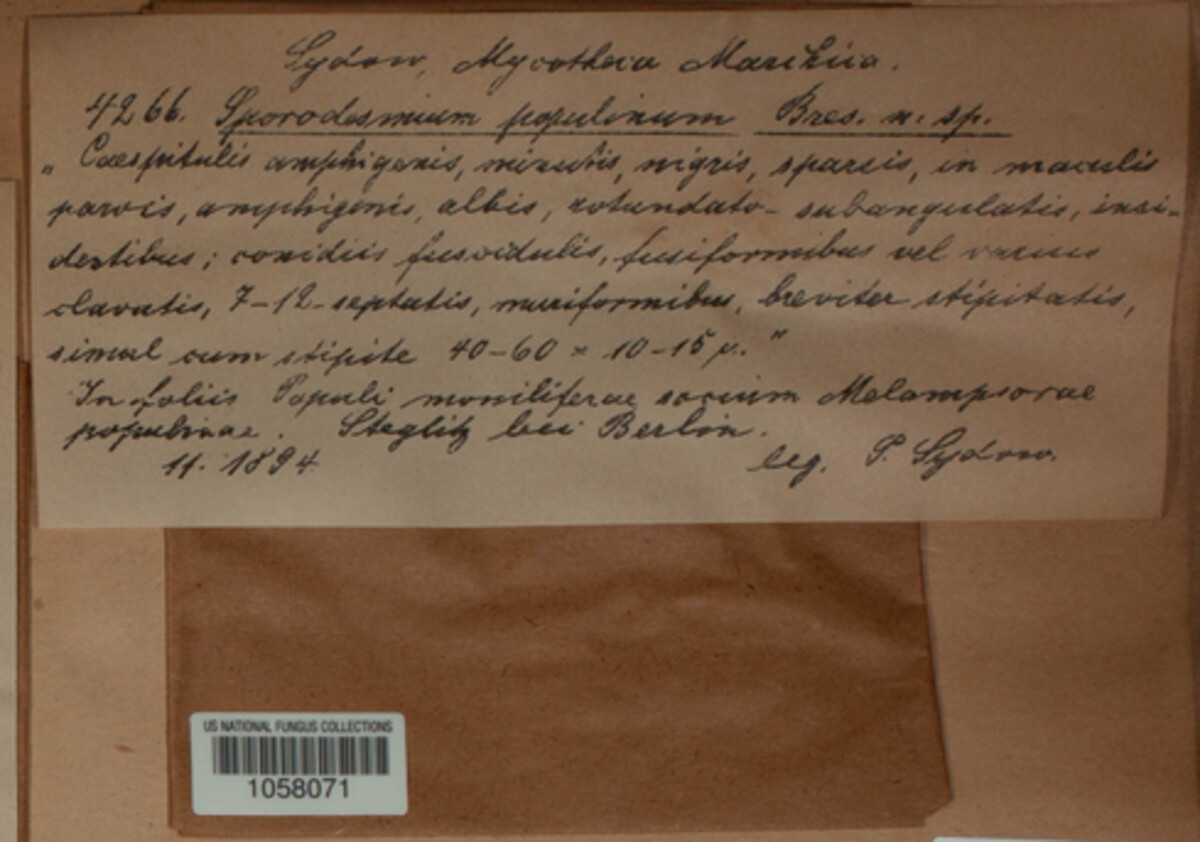 Sydow, Mycotheca Marchica.
4266. Sporodesmium populinum Bres. n. sp.
„Caespitulis amphigenis, minutis, nigris, sparsis, in maculis
parvis, amphigenis, albis, rotundato-subangulatis, insi-
dentibus; conidiis fuscidulis, fusiformibus vel
clavatis, 7-12-septatis, muriformibus, breviter stipitatis,
simul cum stipite 40-60 × 10-15 µ."
In foliis Populi moniliferae socium Melampsorae
populinae. Steglitz bei Berlin.
11. 1894. leg. P. Sydow.
US NATIONAL FUNGUS COLLECTIONS
1058071